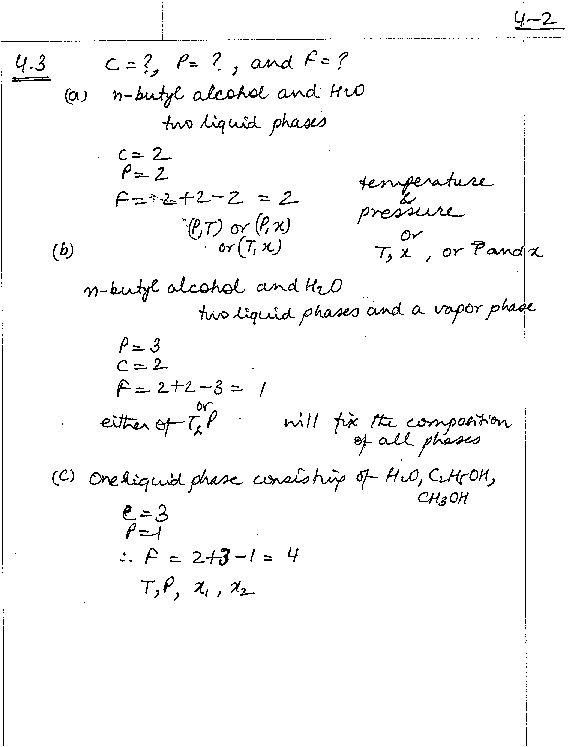 4-2
4.3 C=?, P=?, and F=?
(a) n-butyl alcohol and H2O
two liquid phases
C=2
P=2
F=2+2-2 = 2
(P,T) or (P,x)
or (T,x)
temperature
&
pressure
or
T, x, or P and x
(b)
n-butyl alcohol and H2O
two liquid phases and a vapor phase
P=3
C=2
F=2+2-3= 1
either of T, or P will fix the composition
of all phases
(C) One liquid phase consisting of H2O, C2H5OH,
CH3OH
C=3
P=1
∴ F = 2+3-1 = 4
T,P, x1, x2